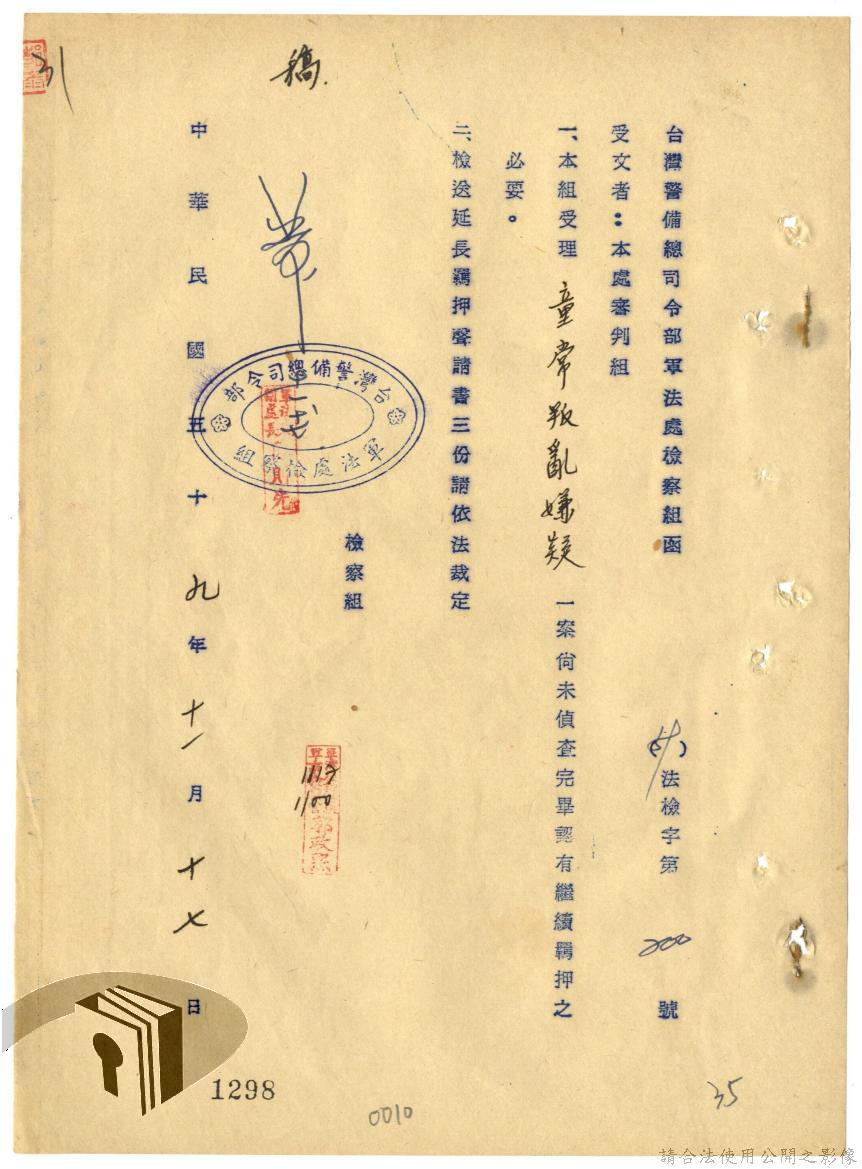 稿
31
台灣警備總司令部軍法處檢察組函
(59)法檢字第
200
號
受文者：本處審判組
一、本組受理童常叛亂嫌疑一案尚未偵查完畢認有繼續羈押之
必要。
二、檢送延長羈押聲請書三份請依法裁定
檢察組
台灣警備總司令部
軍法處檢察組
1117
1100
中華民國五十九年十一月十七日
1298
0010
35
請合法使用公開之影像